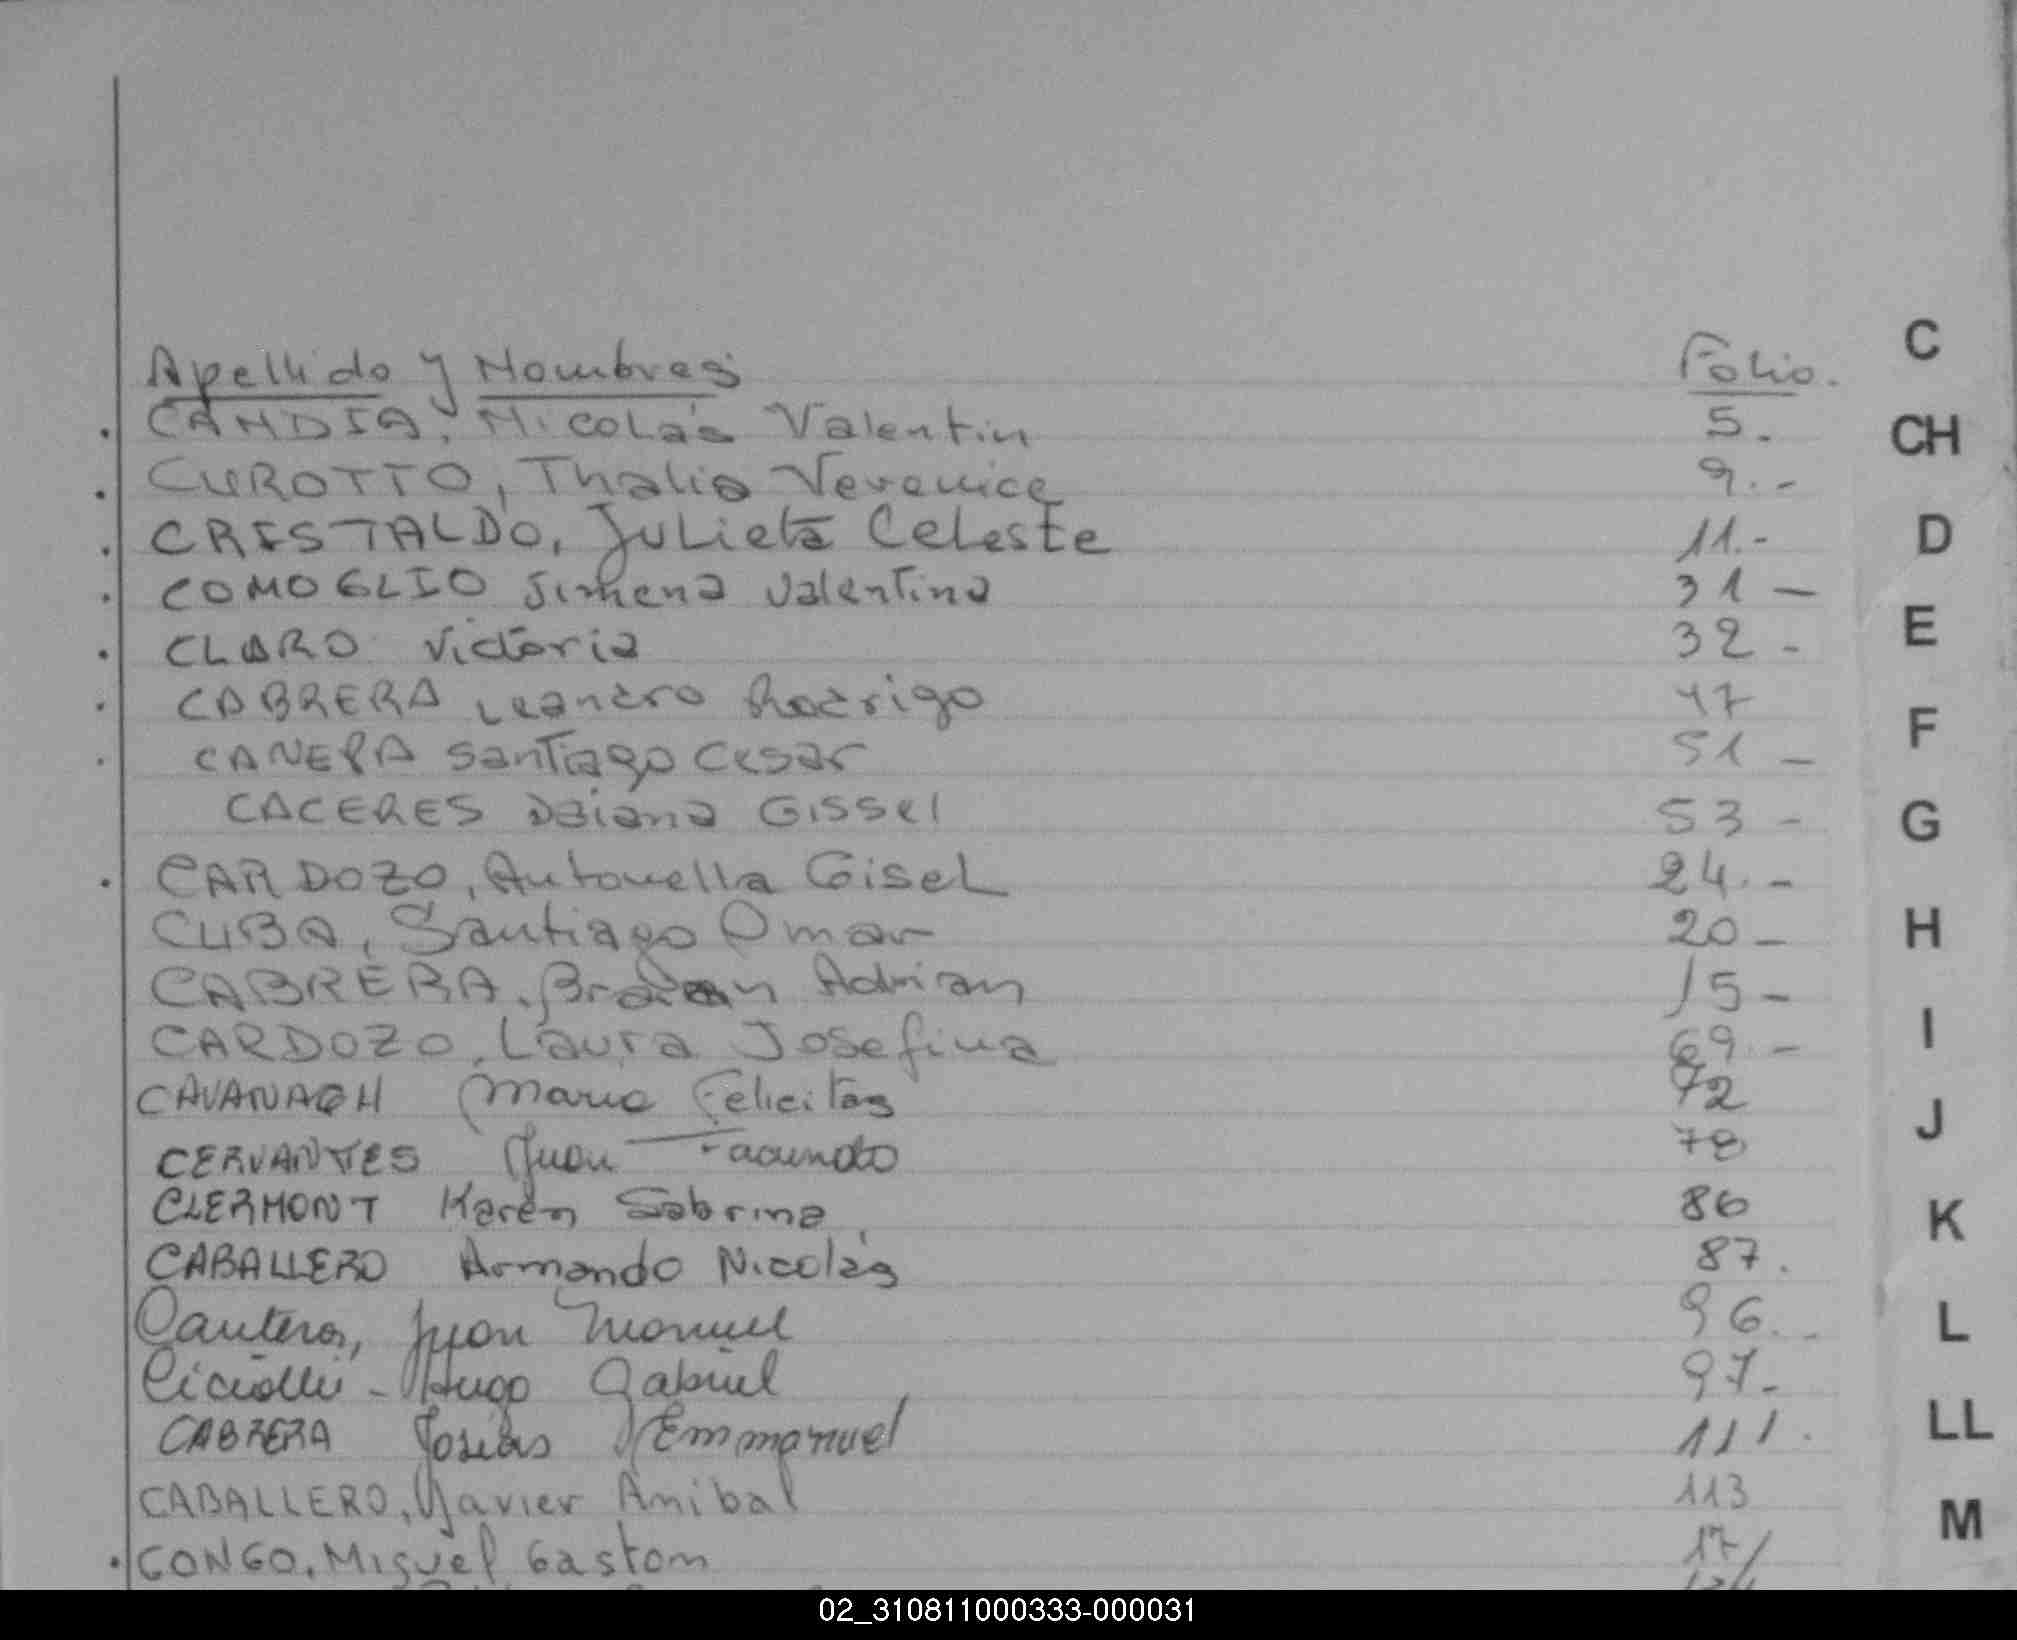 Apellido y Nombres Folio.
CANDIA, Nicolás Valentin 5.
CUROTTO, Thalia Verenice 9.-
CRISTALDO, Julieta Celeste 11.-
COMOGLIO Jimena Valentina 31 -
CLARO Victoria 32 -
CABRERA Leandro Rodrigo 47
CANEPA Santiago Cesar 51 -
CACERES Daiana Gissel 53 -
CARDOZO, Antonella Gisel 24.-
CUBA, Santiago Omar 20 -
CABRERA, Braian Adrian 15 -
CARDOZO, Laura Josefina 69.-
CAVANAGH Maria Felicitas 72
CERVANTES Juan Facundo 78
CLERMONT Karen Sabrina 86
CABALLERO Armando Nicolás 87.
Cantero, Juan Manuel 96.-
Ciciolli - Hugo Gabriel 97.-
CABRERA Josías Emmanuel 111.
CABALLERO, Javier Anibal 113
CONGO, Miguel Gaston 17/
C
CH
D
E
F
G
H
I
J
K
L
LL
M
02_310811000333-000031